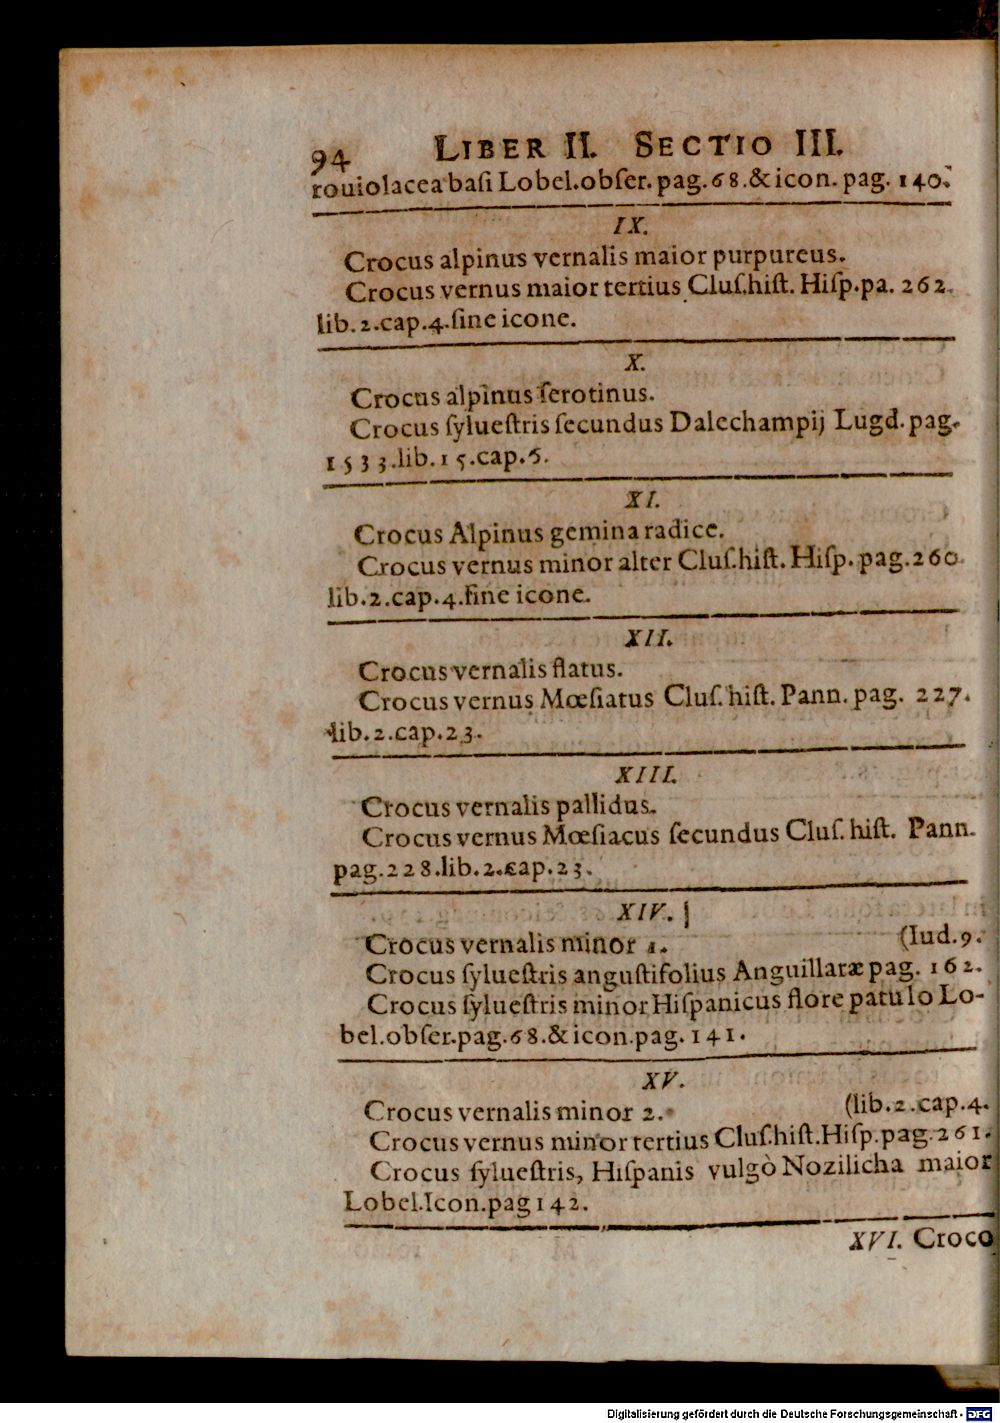 94 LIBER II. SECTIO III.
rouiolacea baſi Lobel.obſer.pag.68.&icon.pag. 140.
IX.
Crocus alpinus vernalis maior purpureus.
Crocus vernus maior tertius Cluſ.hiſt. Hiſp.pa. 262.
lib.2.cap.4.ſine icone.
X.
Crocus alpinus ſerotinus.
Crocus ſylueſtris ſecundus Dalechampij Lugd.pag.
1533.lib.15.cap.5.
XI.
Crocus Alpinus gemina radice.
Crocus vernus minor alter Cluſ.hiſt. Hiſp.pag.260.
lib.2.cap.4.ſine icone.
XII.
Crocus vernalis flatus.
Crocus vernus Mœſiatus Cluſ.hiſt. Pann.pag. 227.
lib.2.cap.23.
XIII.
Crocus vernalis pallidus.
Crocus vernus Mœſiacus ſecundus Cluſ.hiſt. Pann.
pag.228.lib.2.cap.23.
XIV.
Crocus vernalis minor 1. (Iud.9.
Crocus ſylueſtris anguſtifolius Anguillaræ pag. 162.
Crocus ſylueſtris minor Hiſpanicus flore patulo Lo-
bel.obſer.pag.68.&icon.pag.141.
XV.
Crocus vernalis minor 2. (lib.2.cap.4.
Crocus vernus minor tertius Cluſ.hiſt.Hiſp.pag.261.
Crocus ſylueſtris, Hiſpanis vulgò Nozilicha maior
Lobel.Icon.pag 142.
XVI. Croco
Digitalisierung gefördert durch die Deutsche Forschungsgemeinschaft - DFG